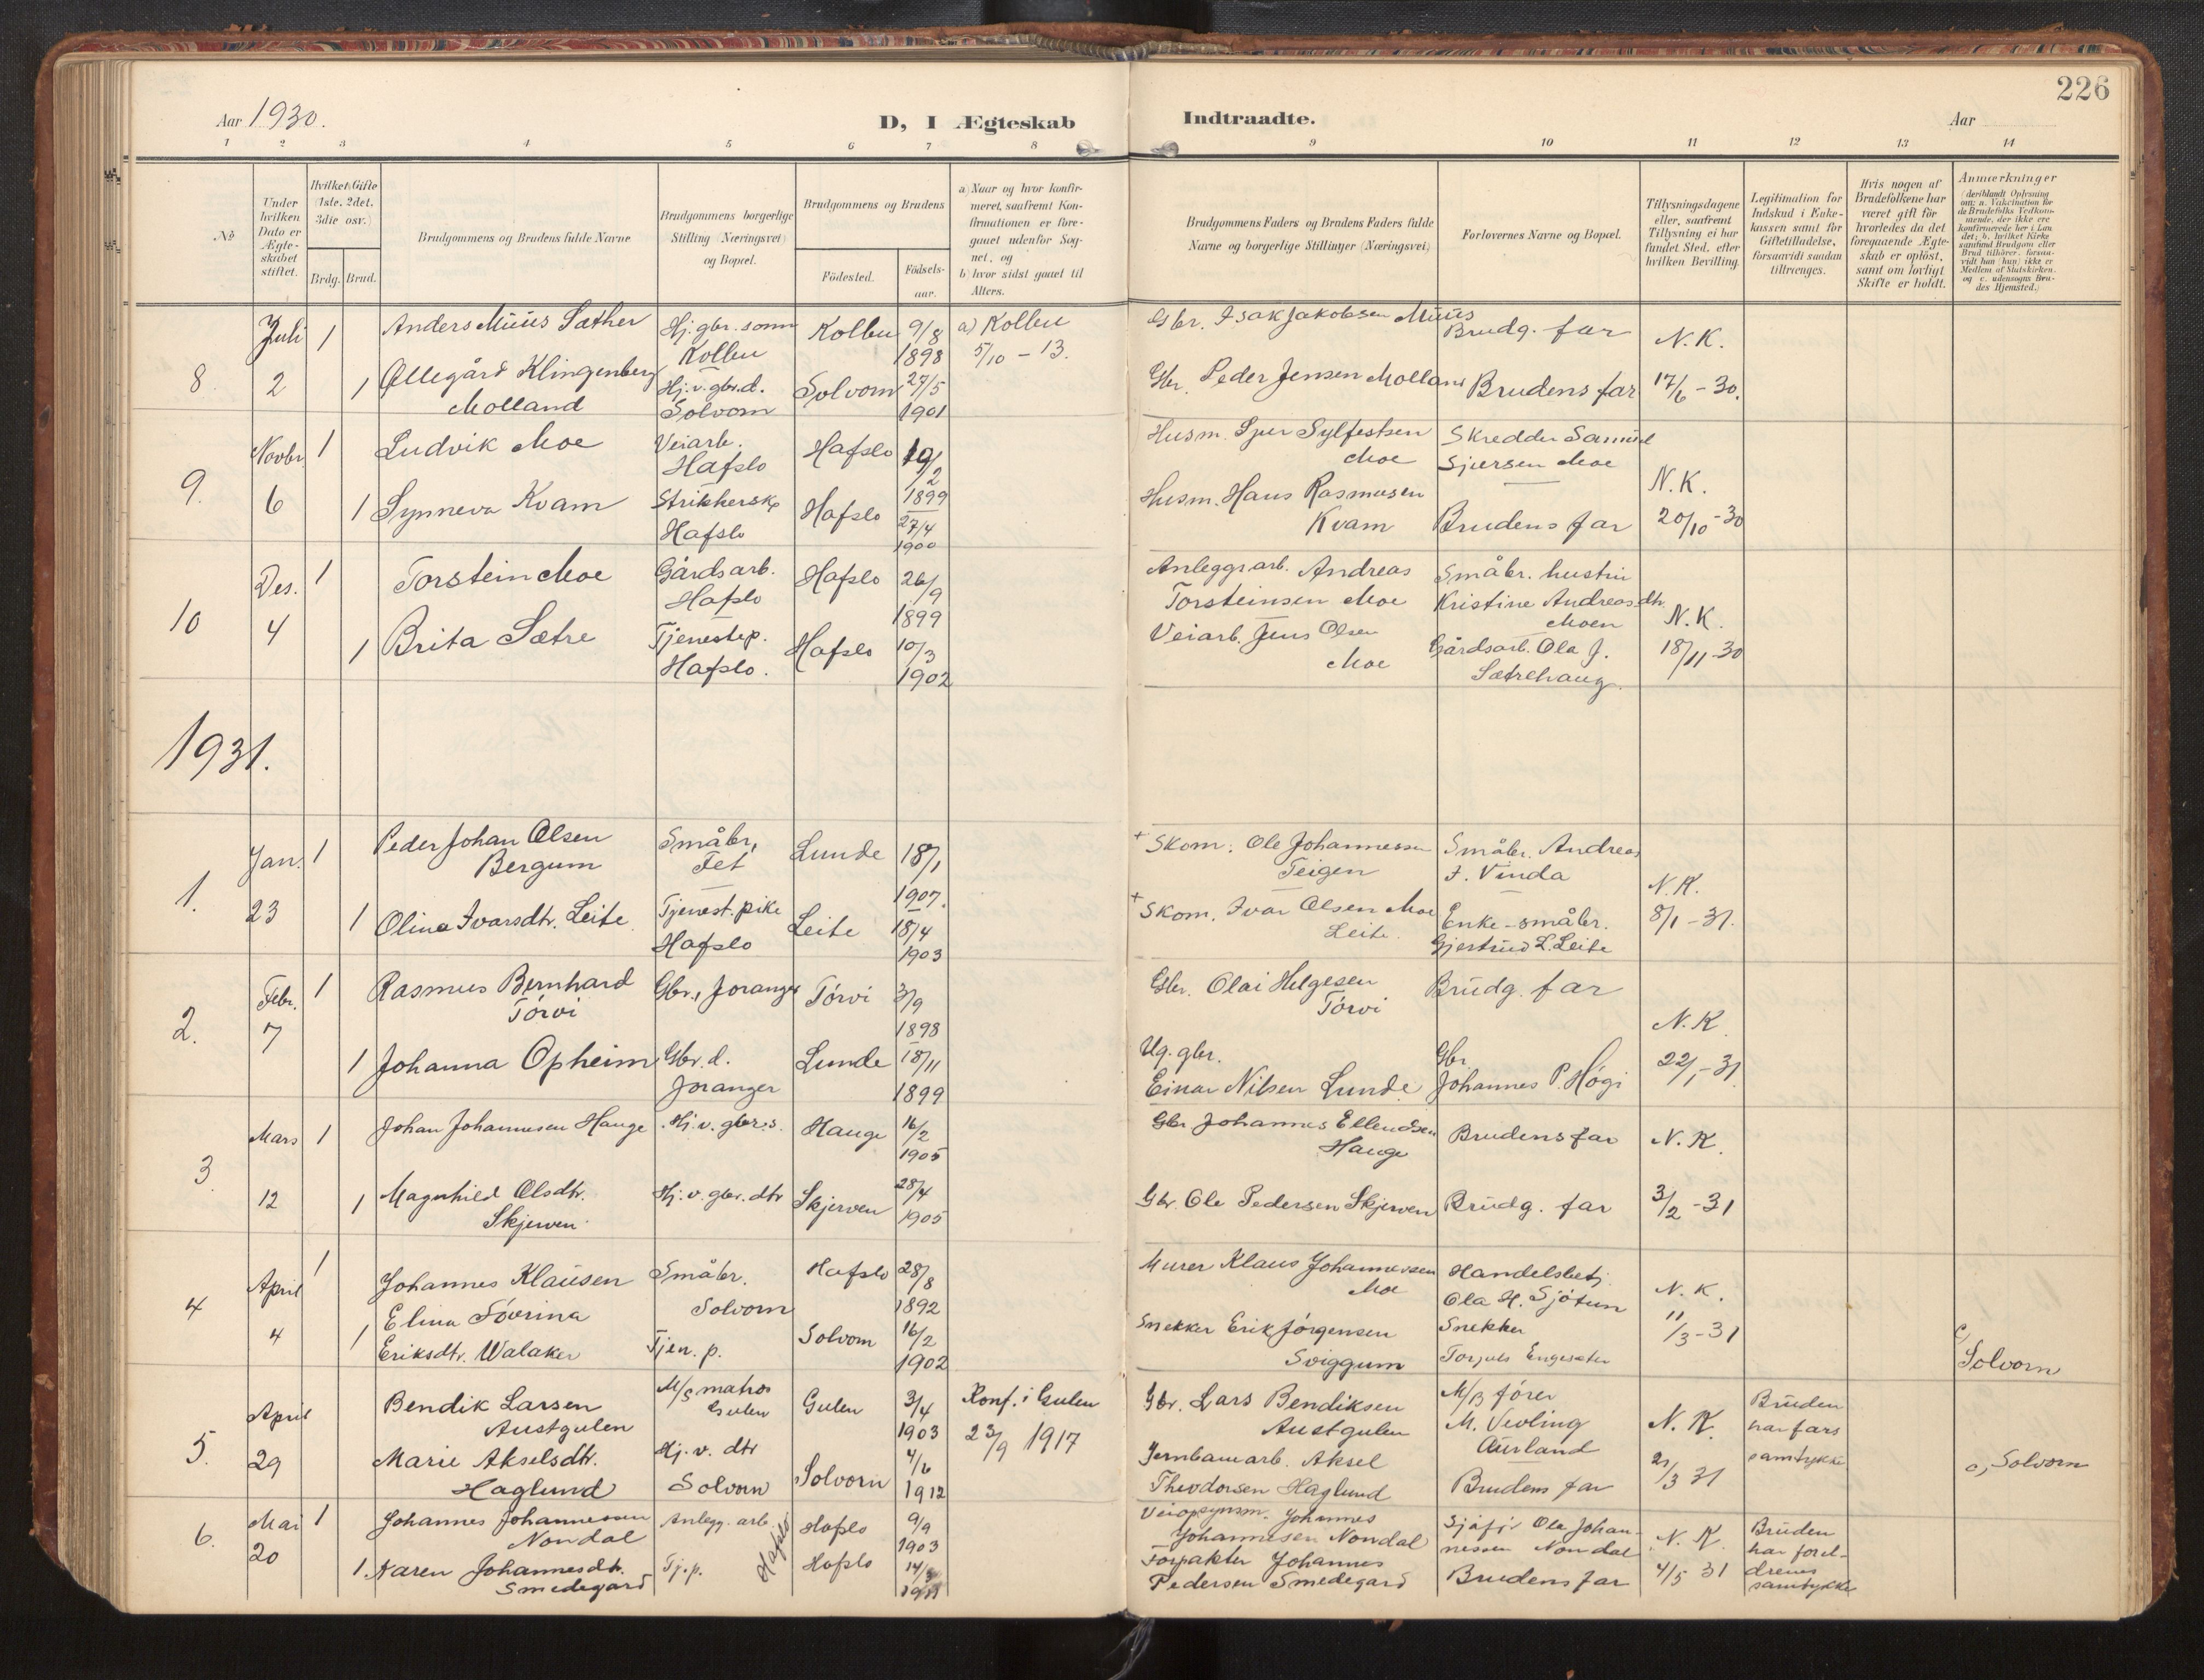 226
Aar 1930.
D, I Ægteskab
Indtraadte.
Aar
1 2 3 4 5 6 7 8 9 10 11 12 13 14
No
Under hvilken Dato er Ægteskabet stiftet.
Hvilket Gifte (1ste, 2det, 3die osv.)
Brdg. Brud.
Brudgommens og Brudens fulde Navne
Brudgommens borgerlige Stilling (Næringsvei) og Bopæl.
Brudgommens og Brudens
Födested.
Födsels-aar.
a) Naar og hvor konfirmeret, saafremt Konfirmationen er foregaaet udenfor Sognet, og
b) hvor sidst gaaet til Alters.
Brudgommens Faders og Brudens Faders fulde Navne og borgerlige Stillinger (Næringsvei)
Forlovernes Navne og Bopæl.
Tillysningsdagene eller, saafremt Tillysning ei har fundet Sted, efter hvilken Bevilling.
Legitimation for Indskud i Enkekassen samt for Giftetilladelse, forsaavidt saadan tiltrænges.
Hvis nogen af Brudefolkene har været gift för hvorledes da det foregaaende Ægteskab er oplöst, samt om lovligt Skifte er holdt.
Anmærkninger
8. Juli 2
1 Anders Müüs Sæther
Hj. gbr. sönn Kolbu
Kolbu
9/8 1898
a) Kolbu 5/10 – 13.
Gbr. Isak Jakobsen Müüs
Brudg. far
N.K.
1 Ollegård Klingenberg Molland
Hj. v. gbr. d. Solvorn
Solvorn
27/5 1901
Gbr. Peder Jensen Molland
Brudens far
17/6 – 30.
9. Novbr. 6
1 Ludvik Moe
Veiarb. Hafslo
Hafslo
19/2 1899
Husm. Sjur Sylfestsen Moe
Skredder Samuel Sjursen Moe
N.K.
1 Synneva Kvam
Strikkersk. Hafslo
Hafslo
27/4 1900
Husm. Hans Rasmusen Kvam
Brudens far
20/10 – 30
10 Des. 4
1 Torstein Moe
Gårdsarb. Hafslo
Hafslo
26/9 1899
Anleggsarb. Andreas Torsteinsen Moe
Småbr. hustru Kristine Andreasdtr. Moen
N.K.
1 Brita Sætre
Tjenestep. Hafslo.
Hafslo
10/3 1902
Veiarb. Jens Olsen Moe
Gårdsarb. Ola J. Sætrehaug.
18/11 – 30
1931.
1. Jan. 23
1 Peder Johan Olsen Bergum
Småbr, Fet
Lunde
18/1 1907.
+ Skom. Ole Johannessen Teigen
Småbr. Andreas J. Vinda
N.K.
1 Olina Ivarsdtr. Leite
Tjenest. pike Hafslo
Leite
18/4 1903
+ Skom. Ivar Olsen Moe Leite
Enke – småbr. Gjertrud L. Leite
8/1 – 31.
2. Febr. 7
1 Rasmus Bernhard Törvi
Gbr., Joranger
Törvi
3/9 1898
Gbr. Olai Helgesen Törvi
Brudg. far
N.K.
1 Johanna Opheim
Gbr. d. Joranger
Lunde
18/11 1899
Ug. gbr. Einar Nilsen Lunde
Gbr. Johannes P. Högi
22/1 – 31
3. Mars 12
1 Johan Johannesen Hauge
Hj. v. gbr. s.
Hauge
16/2 1905
Gbr Johannes Ellendsen Hauge
Brudens far
N.K.
1 Magnhild Olsdtr. Skjerven
Hj. v. gbr. dtr
Skjerven
28/4 1905
Gbr. Ole Pedersen Skjerven
Brudg. far
3/2 – 31
4 April 4
1 Johannes Klausen
Småbr. Solvorn
Hafslo
28/8 1892
Murer Klaus Johannessen Moe
Handelsbetj. Ola H. Sjötun
N.K.
1 Elina Severina Eriksdtr. Walaker
Tjen. p.
Solvorn
16/2 1902
Snekker Erik Jörgensen Sviggum
Snekker Torjuls Engesæter
11/3 – 31
c) Solvorn
5. April 29
Bendik Larsen Austgulen
M/S matros Gulen
Gulen
3/4 1903
Konf. i Gulen 23/9 1917
Gbr. Lars Bendiksen Austgulen
M/B förer M. Vevling Aurland
N.K.
Bruden har fars samtykke
Marie Akselsdtr. Haglund
Hj. v. dtr Solvorn
Solvorn
4/6 1912
Jernbanearb. Aksel Theodorsen Haglund
Brudens far
21/3 31
c, Solvorn
6. Mai 20
1 Johannes Johannessen Nondal
Anlegg. arb. Hafslo
Hafslo
9/9 1903
Veiopsynsm. Johannes Johannesen Nondal
Sjåför Ola Johannessen Nondal
N.K.
Bruden har foreldrenes samtykke
1. Karen Johannesdtr. Smedegard
Tj. p.
Hafslo
Forpakter Johannes Pedersen Smedegard
Brudens far
4/5 31